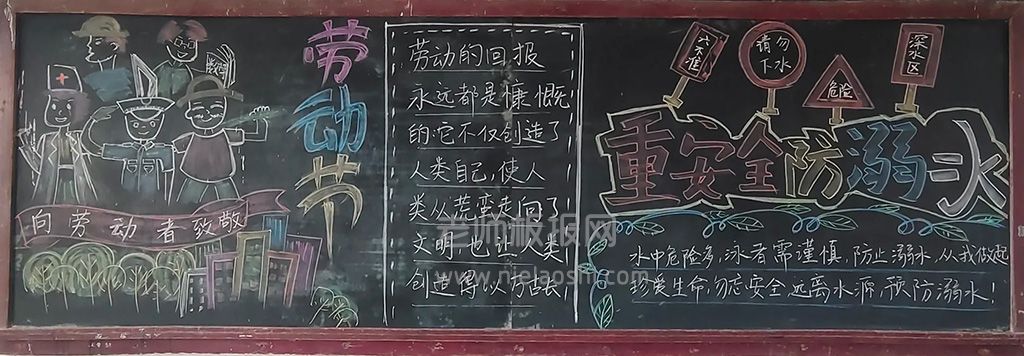 向劳动者致敬
劳动节
劳动的回报
永远都是慷慨
的它不仅创造了
人类自己,使人
类从荒蛮走向了
文明,也让人类
创造得以传古去
六不准
请勿下水
危险
深水区
重安全防溺水
水中危险多,泳者需谨慎,防止溺水,从我做起
珍爱生命,勿忘安全,远离水源,预防溺水!
老师板报网
www.nielaoshi.com